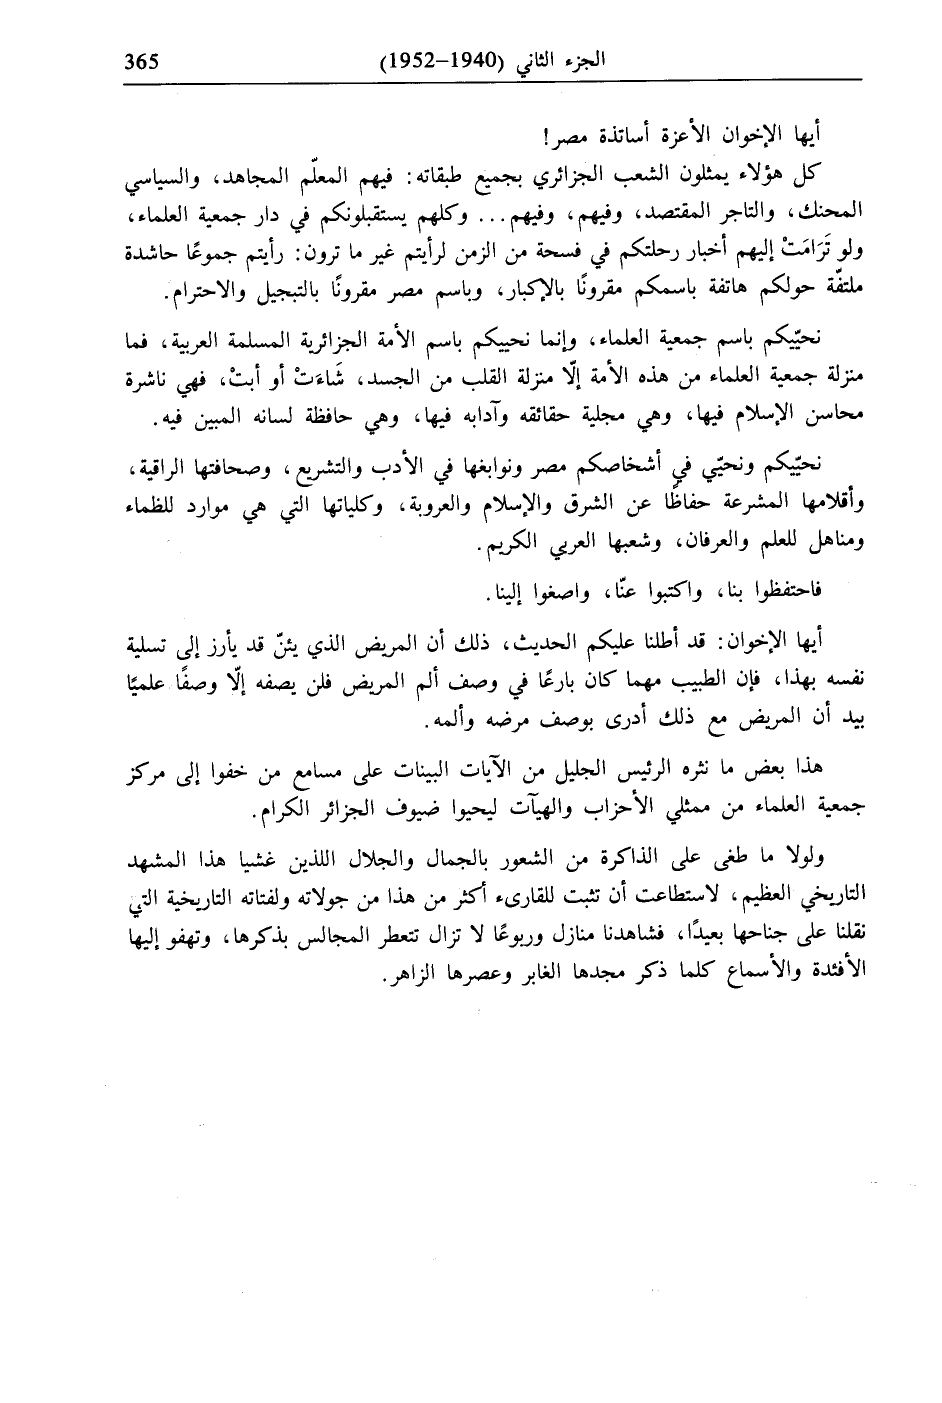 الجزء الثاني (1940–1952) 365
أيها الإخوان الأعزة أساتذة مصر!
كل هؤلاء يمثلون الشعب الجزائري بجميع طبقاته: فيهم المعلّم المجاهد، والسياسي
المحنك، والتاجر المقتصد، وفيهم، وفيهم... وكلهم يستقبلونكم في دار جمعية العلماء،
ولو تَرَامَتْ إليهم أخبار رحلتكم في فسحة من الزمن لرأيتم غير ما ترون: رأيتم جموعًا حاشدة
ملتفّة حولكم هاتفة باسمكم مقرونًا بالإكبار، وباسم مصر مقرونًا بالتبجيل والاحترام.
نحيّيكم باسم جمعية العلماء، وإنما نحييكم باسم الأمة الجزائرية المسلمة العربية، فما
منزلة جمعية العلماء من هذه الأمة إلّا منزلة القلب من الجسد، شَاءَتْ أو أبتْ، فهي ناشرة
محاسن الإسلام فيها، وهي مجلية حقائقه وآدابه فيها، وهي حافظة لسانه المبين فيه.
نحيّيكم ونحيّي في أشخاصكم مصر ونوابغها في الأدب والتشريع، وصحافتها الراقية،
وأقلامها المشرعة حفاظًا عن الشرق والإسلام والعروبة، وكلياتها التي هي موارد للظماء
ومناهل للعلم والعرفان، وشعبها العربي الكريم.
فاحتفظوا بنا، واكتبوا عنّا، واصغوا إلينا.
أيها الإخوان: قد أطلنا عليكم الحديث، ذلك أن المريض الذي يئنّ قد يأرز إلى تسلية
نفسه بهذا، فإن الطبيب مهما كان بارعًا في وصف ألم المريض فلن يصفه إلّا وصفًا علميًا
بيد أن المريض مع ذلك أدرى بوصف مرضه وألمه.
هذا بعض ما نثره الرئيس الجليل من الآيات البينات على مسامع من خفوا إلى مركز
جمعية العلماء من ممثلي الأحزاب والهيآت ليحيوا ضيوف الجزائر الكرام.
ولولا ما طغى على الذاكرة من الشعور بالجمال والجلال اللذين غشيا هذا المشهد
التاريخي العظيم، لاستطاعت أن تثبت للقارىء أكثر من هذا من جولاته ولفتاته التاريخية التي
نقلنا على جناحها بعيدًا، فشاهدنا منازل وربوعًا لا تزال تتعطر المجالس بذكرها، وتهفو إليها
الأفئدة والأسماع كلما ذكر مجدها الغابر وعصرها الزاهر.